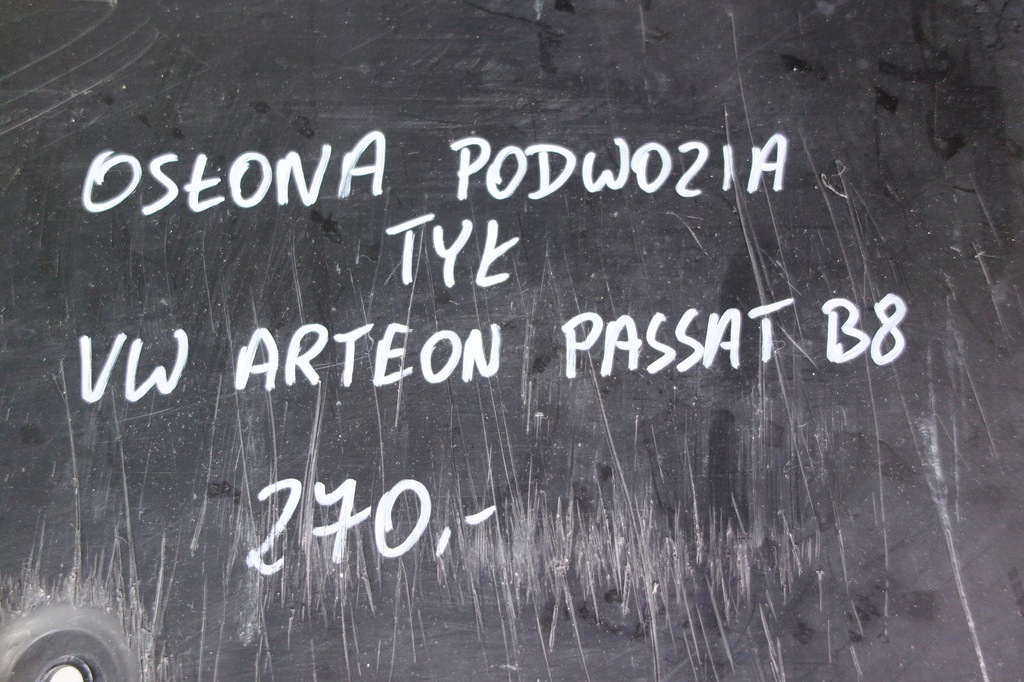 OSŁONA PODWOZIA
TYŁ
VW ARTEON PASSAT B8
270,-